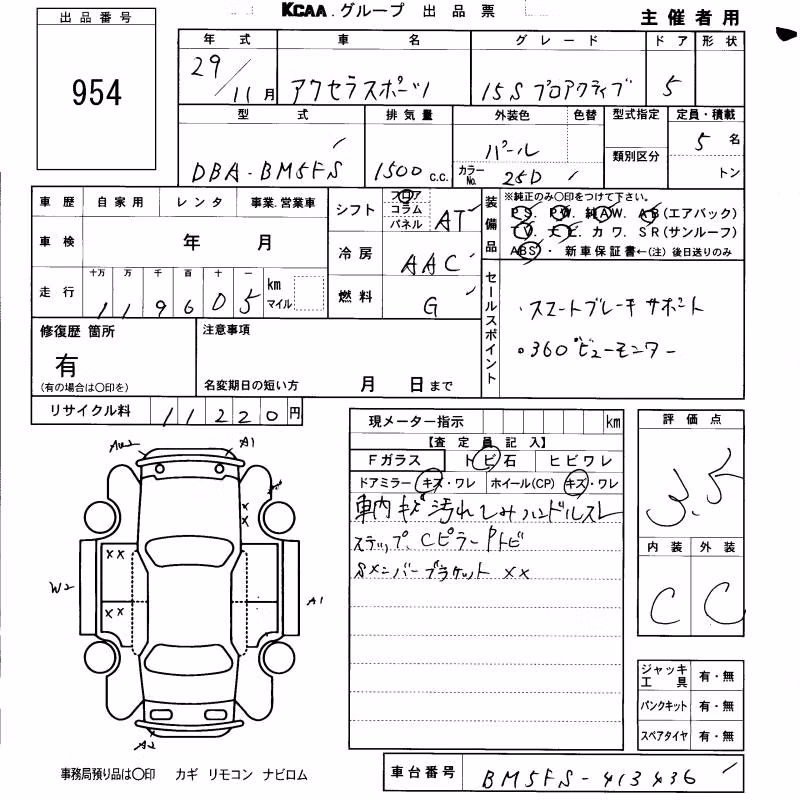 出品番号
KCAA.グループ 出品票
主催者用
954
年式 車名 グレード ドア 形状
29/11月 アクセラスポーツ 15S プロアクティブ 5
型式 排気量 外装色 色替 型式指定 定員・積載
DBA-BM5FS 1500c.c. パール カラーNo. 25D 類別区分 5名 トン
車歴 自家用 レンタ 事業.営業車
車検 年 月
走行 十万 万 千 百 十 一 km マイル
119605
シフト フロア コラム パネル AT
冷房 AAC
燃料 G
装備品 ※純正のみ〇印をつけて下さい。
PS. PW. 純AW. AB(エアバック)
TV. ナビ. カワ. SR(サンルーフ)
ABS. 新車保証書←(注) 後日送りのみ
セールスポイント
・スマートブレーキサポート
・360°ビューモニター
修復歴 箇所
有
(有の場合は〇印を)
注意事項
名変期日の短い方 月 日まで
リサイクル料 11220円
現メーター指示 km
【査定員記入】
Fガラス トビ石 ヒビワレ
ドアミラー キズ・ワレ ホイール(CP) キズ・ワレ
車内キズ 汚れ しみ ハンドルスレ
ステップ、Cピラー Pトビ
Sメンバーブラケット ××
評価点
3.5
内装 外装
C C
AU2 A1
××
××
W2
××
A1
A2
ジャッキ工具 有・無
パンクキット 有・無
スペアタイヤ 有・無
事務局預り品は〇印 カギ リモコン ナビロム
車台番号 BM5FS-413436